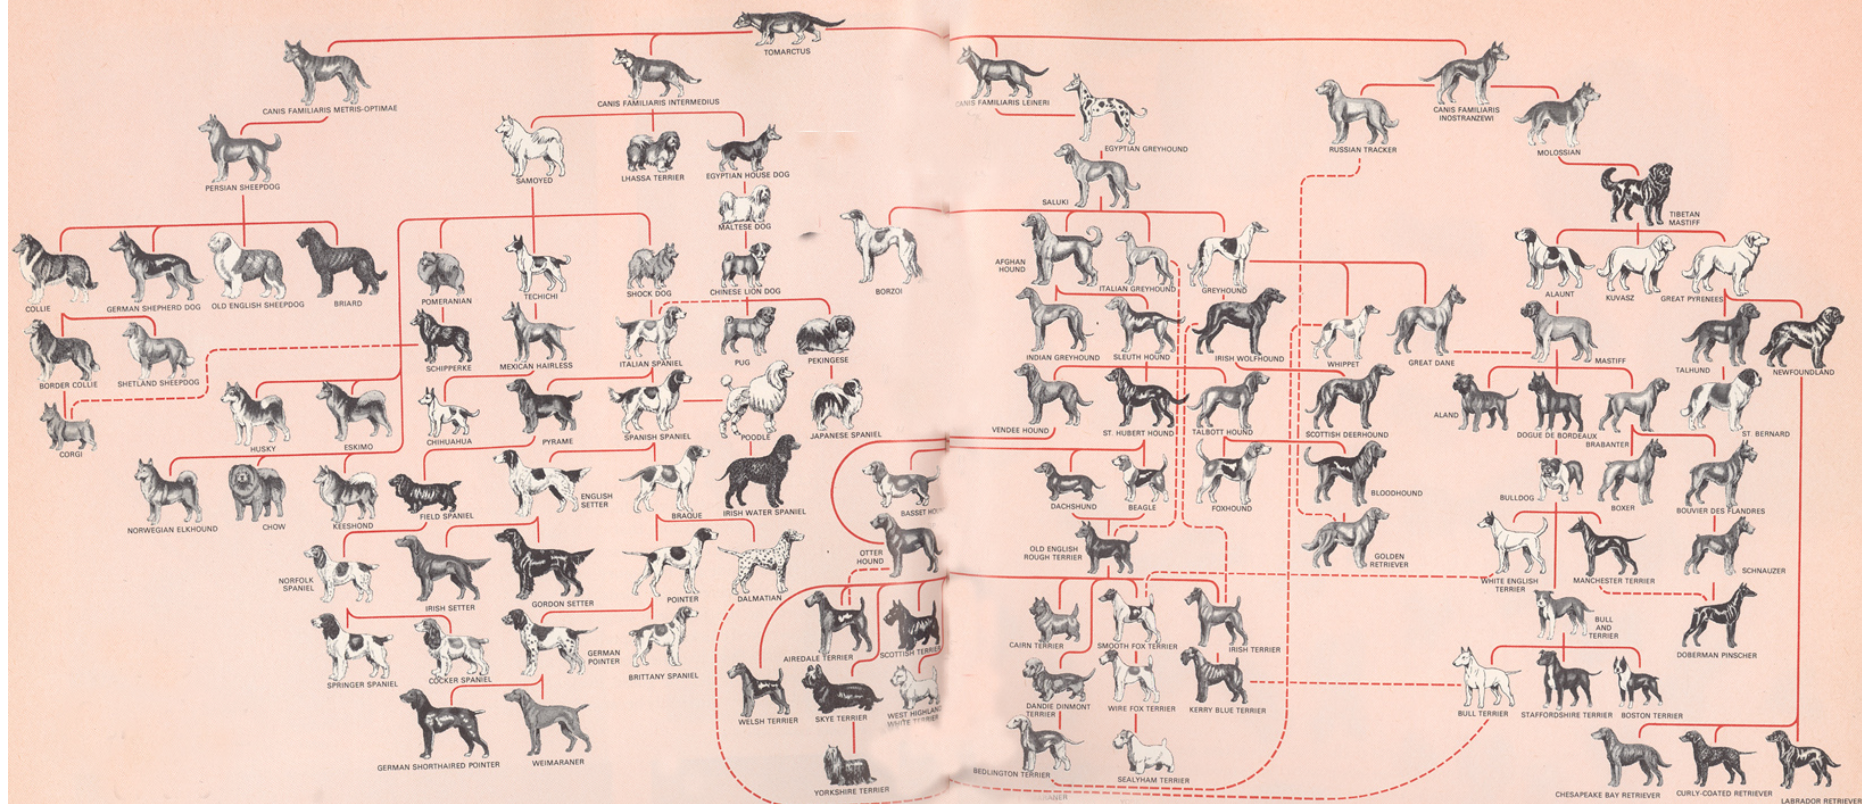 TOMARCTUS
CANIS FAMILIARIS METRIS-OPTIMAE
CANIS FAMILIARIS INTERMEDIUS
CANIS FAMILIARIS LEINERI
CANIS FAMILIARIS
INOSTRANZEWI
EGYPTIAN GREYHOUND
RUSSIAN TRACKER
MOLOSSIAN
PERSIAN SHEEPDOG
SAMOYED
LHASSA TERRIER
EGYPTIAN HOUSE DOG
SALUKI
TIBETAN
MASTIFF
MALTESE DOG
COLLIE
GERMAN SHEPHERD DOG
OLD ENGLISH SHEEPDOG
BRIARD
POMERANIAN
TECHICHI
SHOCK DOG
CHINESE LION DOG
BORZOI
AFGHAN
HOUND
ITALIAN GREYHOUND
GREYHOUND
ALAUNT
KUVASZ
GREAT PYRENEES
BORDER COLLIE
SHETLAND SHEEPDOG
SCHIPPERKE
MEXICAN HAIRLESS
ITALIAN SPANIEL
PUG
PEKINGESE
INDIAN GREYHOUND
SLEUTH HOUND
IRISH WOLFHOUND
WHIPPET
GREAT DANE
MASTIFF
TALHUND
NEWFOUNDLAND
CORGI
HUSKY
ESKIMO
CHIHUAHUA
PYRAME
SPANISH SPANIEL
POODLE
JAPANESE SPANIEL
VENDEE HOUND
ST. HUBERT HOUND
TALBOTT HOUND
SCOTTISH DEERHOUND
ALAND
DOGUE DE BORDEAUX
BRABANTER
ST. BERNARD
NORWEGIAN ELKHOUND
CHOW
KEESHOND
FIELD SPANIEL
ENGLISH
SETTER
BRAQUE
IRISH WATER SPANIEL
BASSET HO
DACHSHUND
BEAGLE
FOXHOUND
BLOODHOUND
BULLDOG
BOXER
BOUVIER DES FLANDRES
NORFOLK
SPANIEL
IRISH SETTER
GORDON SETTER
POINTER
DALMATIAN
OTTER
HOUND
OLD ENGLISH
ROUGH TERRIER
GOLDEN
RETRIEVER
WHITE ENGLISH
TERRIER
MANCHESTER TERRIER
SCHNAUZER
SPRINGER SPANIEL
COCKER SPANIEL
GERMAN
POINTER
BRITTANY SPANIEL
AIREDALE TERRIER
SCOTTISH TERRIER
CAIRN TERRIER
SMOOTH FOX TERRIER
IRISH TERRIER
BULL
AND
TERRIER
DOBERMAN PINSCHER
WELSH TERRIER
SKYE TERRIER
WEST HIGHLAND
WHITE TERRIER
DANDIE DINMONT
TERRIER
WIRE FOX TERRIER
KERRY BLUE TERRIER
BULL TERRIER
STAFFORDSHIRE TERRIER
BOSTON TERRIER
GERMAN SHORTHAIRED POINTER
WEIMARANER
YORKSHIRE TERRIER
BEDLINGTON TERRIER
SEALYHAM TERRIER
CHESAPEAKE BAY RETRIEVER
CURLY-COATED RETRIEVER
LABRADOR RETRIEVER